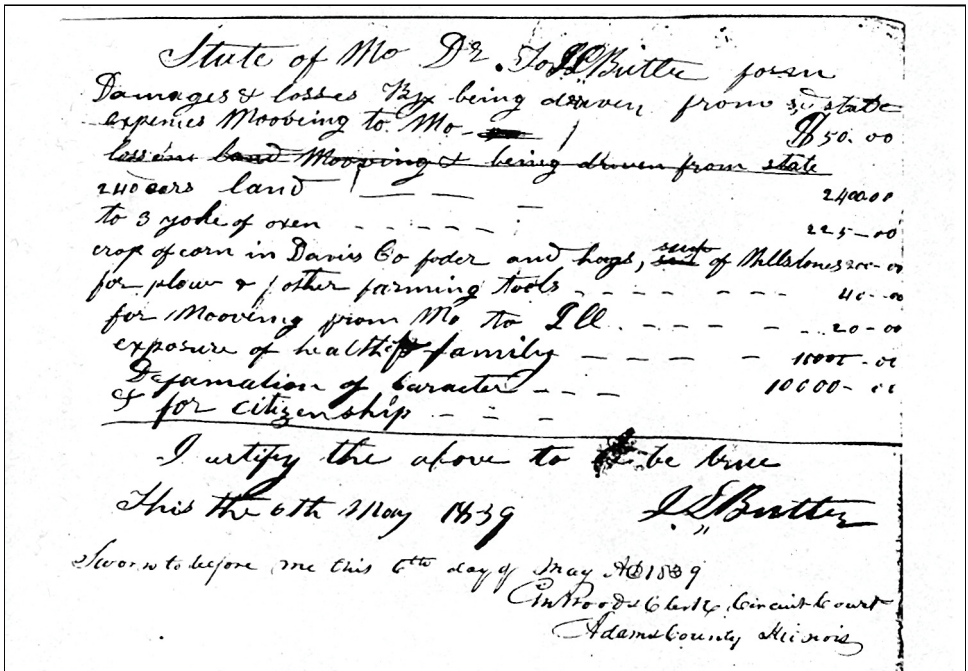 State of Mo Dr. To J L Butler for
Damages & losses By being driven from sd state
expences Mooveing to Mo — $50.00
loss land Mooving & being driven from state
240 cers land — — — 2400.00
to 3 yoke of oxen - - - - - 225-00
crop of corn in Davis Co foder and hogs, sup of Millstones 200-00
for plow & other farming tools - - - - - - - 40-00
for Mooving from Mo to Ill - - - - - 20-00
exposure of health & family — — — -00
Defamation of Caracter - - - 10000-00
& for citizenship - - -
I certify the above to be true
This the 6th May 1839 J L Butler
Sworn to before me this 6th day of May AD 1839
CM Woods Clerk Circuit Court
Adams County Illinois